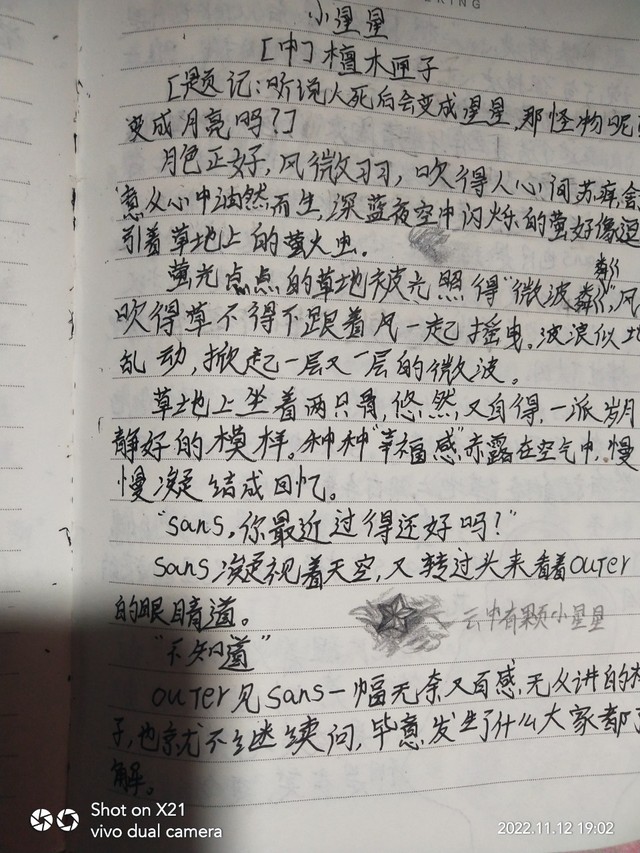 KING
小星星
[中]檀木匣子
[题记:听说人死后会变成星星,那怪物呢
变成月亮吗?]
月色正好,风微习习,吹得人心间苏痒,
意从心中油然而生,深蓝夜空中闪烁的萤好像
引着草地上的萤火虫。
萤光点点的草地被光照得"微波粼粼",风
吹得草不得不跟着风一起摇曳。波浪似地
乱动,掀起一层又一层的微波。
草地上坐着两只骨,悠然又自得,一派岁月
静好的模样。种种"幸福感"赤露在空气中,慢
慢凝结成回忆。
"sans,你最近过得还好吗?"
sans凝视着天空,又转过头来看着outer
的眼睛道。
云中有颗小星星
"不知道"
outer见sans一幅无奈又百感,无从讲的
子,也就不继续问,毕意发生了什么大家都
解。
Shot on X21
vivo dual camera
2022.11.12 19:02